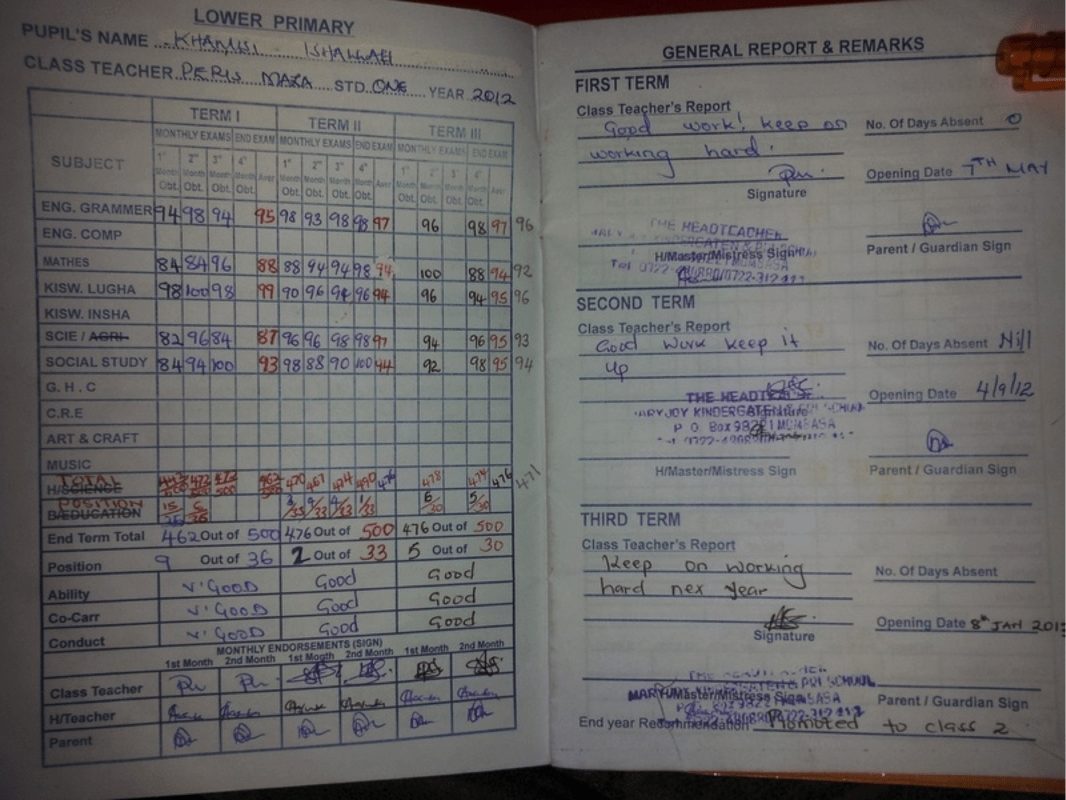 LOWER PRIMARY
PUPIL'S NAME KHAMISI ISHMAEL
CLASS TEACHER PERIS MAZA STD. ONE YEAR 2012
SUBJECT TERM I TERM II TERM III
MONTHLY EXAMS END EXAM MONTHLY EXAMS END EXAM MONTHLY EXAMS END EXAM
1st 2nd 3rd 4th Aver 1st 2nd 3rd 4th Aver 1st 2nd 3 4 Aver
Month Month Month Month Month Month Month Month Month Month
Obt. Obt. Obt. Obt. Obt. Obt. Obt. Obt. Obt. Obt.
ENG. GRAMMER 94 98 94 95 98 93 98 98 97 96 98 97 96
ENG. COMP
MATHES 84 84 96 88 88 94 94 98 94 100 88 94 92
KISW. LUGHA 98 100 98 99 90 96 94 96 94 96 94 95 96
KISW. INSHA
SCIE / AGRI 82 96 84 87 96 96 98 98 97 94 96 95 93
SOCIAL STUDY 84 94 100 93 98 88 90 100 94 92 98 95 94
G. H. C
C.R.E
ART & CRAFT
MUSIC
TOTAL 472/500 472/500 462/500 470 467 474 490 476 478 474 476 471
H/SCIENCE
POSITION 6/30 5/30
B/EDUCATION
End Term Total 462 Out of 500 476 Out of 500 476 Out of 500
Position 9 Out of 36 2 Out of 33 5 Out of 30
Ability V. GOOD Good Good
Co-Carr V. GOOD Good Good
Conduct V. GOOD Good Good
MONTHLY ENDORSEMENTS (SIGN)
1st Month 2nd Month 1st Month 2nd Month 1st Month 2nd Month
Class Teacher
H/Teacher
Parent
GENERAL REPORT & REMARKS
FIRST TERM
Class Teacher's Report
Good work! keep on No. Of Days Absent 0
working hard.
Opening Date 7TH MAY
Signature
THE HEADTEACHER
H/Master/Mistress Sign Parent / Guardian Sign
SECOND TERM
Class Teacher's Report
Good work keep it No. Of Days Absent Nill
up
Opening Date 4/9/12
THE HEADTEACHER
MARYJOY KINDERGATEN & PRI SCHOOL
Signature
P. O. Box MOMBASA
H/Master/Mistress Sign Parent / Guardian Sign
THIRD TERM
Class Teacher's Report
Keep on working No. Of Days Absent
hard nex year
Signature Opening Date 8th JAN 2013
KINDERGATEN & PRI SCHOOL
H/Master/Mistress Sign Parent / Guardian Sign
End year Recommendation Promoted to class 2.